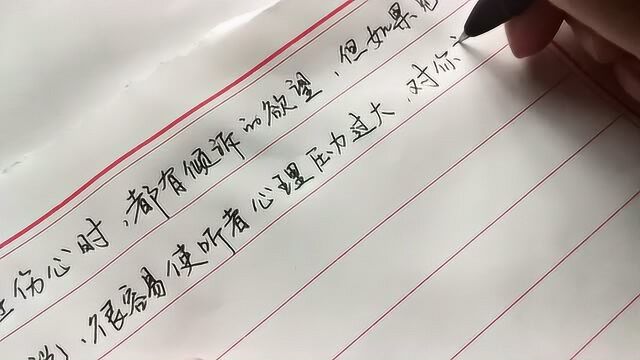 在伤心时，都有倾诉的欲望，但如果
，很容易使听者心理压力过大，对你